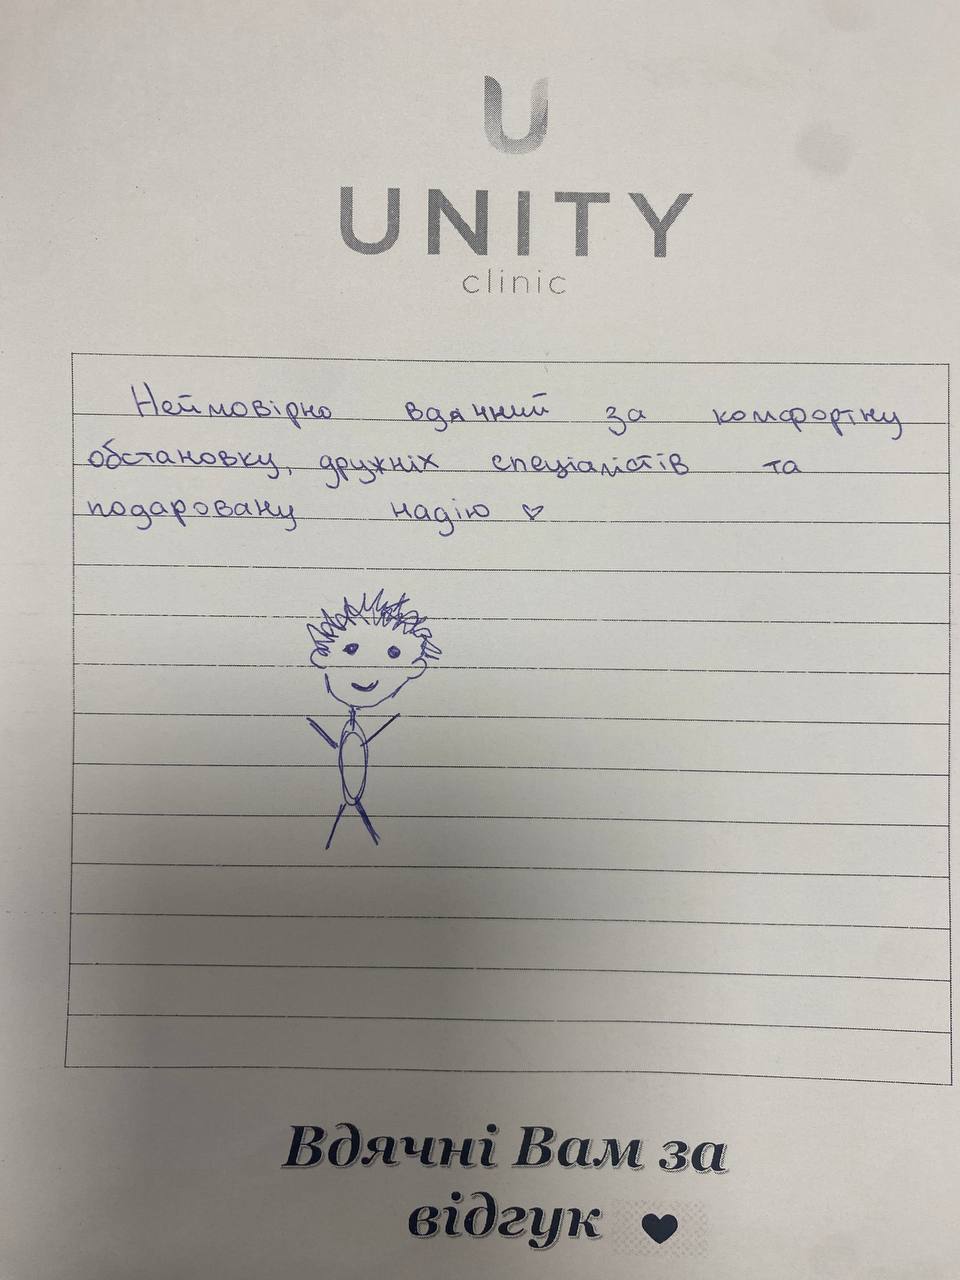 U
UNITY
clinic
Неймовірно вдячний за комфортну
обстановку, дружніх спеціалістів та
подаровану надію ♡
Вдячні Вам за
відгук ♥